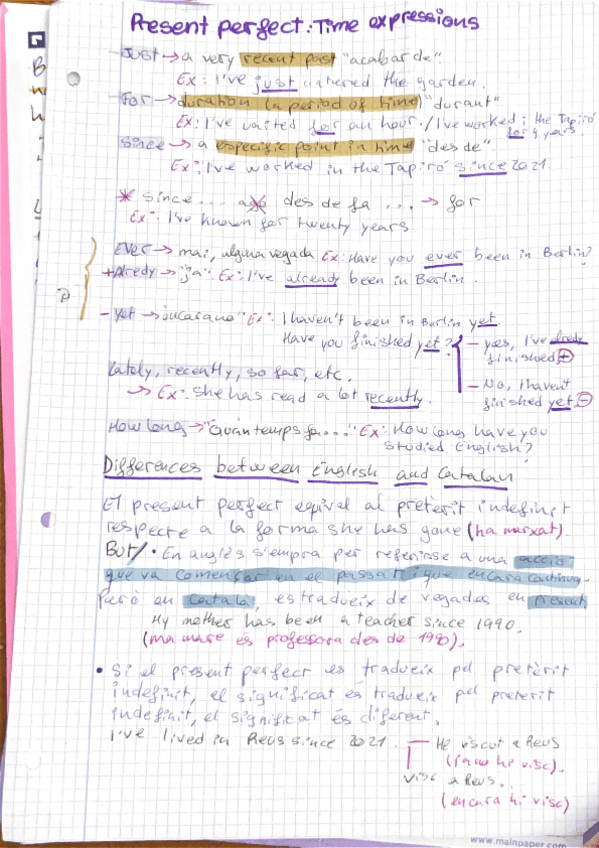 Present perfect: Time expressions
Just → a very recent past "acabar de"
Ex: I've just watered the garden.
For → duration (a period of time) "durant"
Ex: I've waited for an hour. / I've worked in the Tapiró
for 4 years
Since → a especific point in time "des de"
Ex: I've worked in the Tapiró since 2021.
* Since ... ago des de fa ... → for
Ex: I've known for twenty years
Ever → mai, alguna vegada Ex: Have you ever been in Berlin?
+ Alredy → "ja" Ex: I've already been in Berlin.
- Yet → "encara no" Ex: I haven't been in Berlin yet
Have you finished yet?
- yes, I've alredy
finished +
- No, I haven't
finished yet -
Lately, recently, so far, etc.
→ Ex: She has read a lot recently.
How long → "Quan temps fa..." Ex: How long have you
studied English?
Differences between English and Catalan
El present perfect equival al pretèrit indefinit
respecte a la forma she has gone (ha marxat)
But / • En anglès s'empra per referirse a una acció
que va començar en el passat i que encara continua.
Però en català, es tradueix de vegades en present
My mother has been a teacher since 1990.
(ma mare és professora des de 1990).
• Si el present perfect es tradueix pel pretèrit
indefinit, el significat és tradueix pel preterit
indefinit, el significat és diferent.
I've lived in Reus since 2021.
He viscut a Reus
(ja no hi visc).
Visc a Reus...
(encara hi visc)
www.mainpaper.com